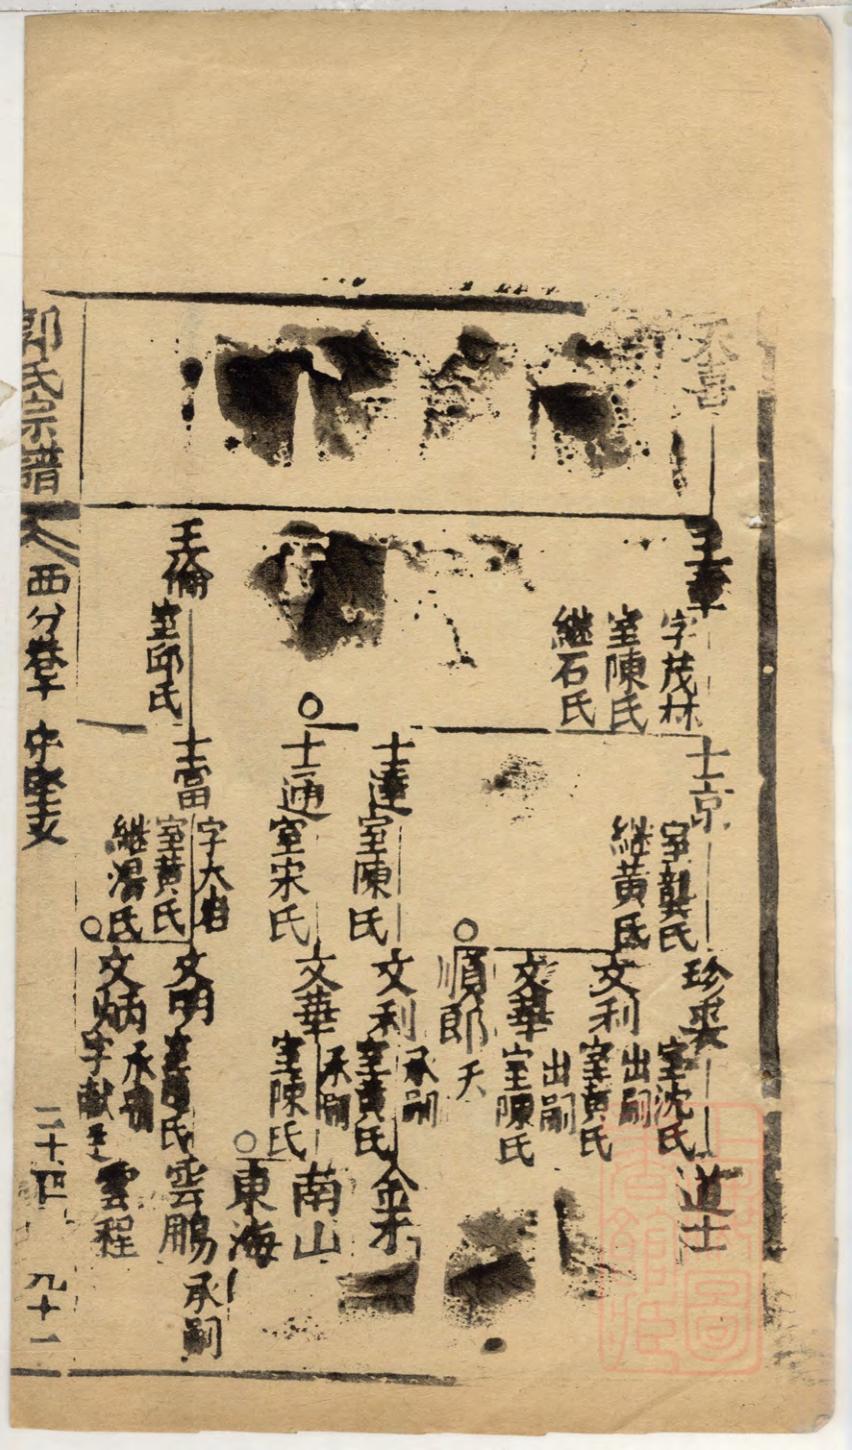 丕喜
玉章
字茂林
室陳氏
継石氏
玉倫
室邱氏
士京
室龔氏
継黄氏
士達
室陳氏
士通
室宋氏
士富
字大㟁
室黄氏
継湯氏
珍裘
室沈氏
文利
出嗣
室黄氏
文華
出嗣
室陳氏
順郎
夭
文利
承嗣
室黄氏
文華
承嗣
室陳氏
文明
文炳
承嗣
道士
金才
南山
東海
雲鵬
承嗣
雲程
郭氏宗譜
西分卷十
二十四
九十一